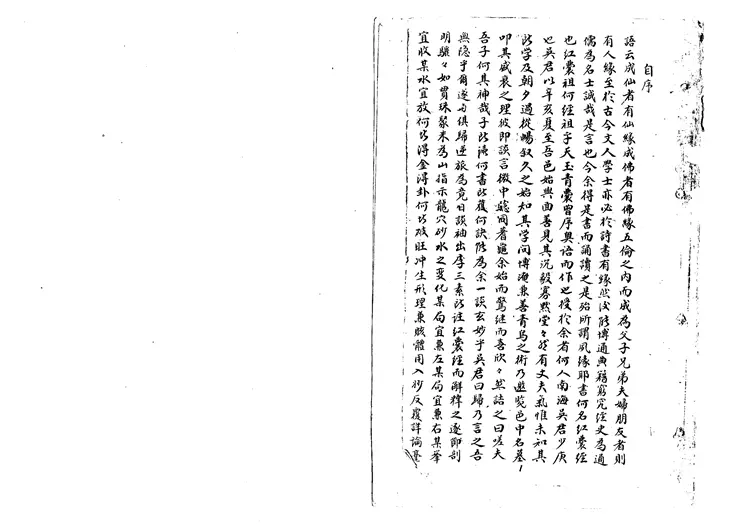 自序
語云成仙者有仙緣成佛者有佛緣五倫之內而成為父子兄弟夫婦朋友者則
有人緣至於古今文人學士亦必於詩書有緣然后能博通典籍窮究經史為通
儒為名士誠哉是言也今余得是書而誦讀之是殆所謂夙緣耶書何名紅囊經
也紅囊祖何經祖乎天玉青囊曾序奧語而作也授於余者何人南海吳君少庚
也吳君以辛亥夏至吾邑始與面善見其沉毅寡默堂々然有丈夫氣惟未知其
所学及朝夕過從暢叙久之始知其学问博淹兼善青烏之術乃遨覧邑中名墓
叩其盛衰之理彼即談言微中聽同蓍龜余始而驚继而喜欣々然詰之曰嗟夫
吾子何其神哉子所讀何書所獲何訣能為余一談玄妙乎吳君曰歸乃言之吾
無隐乎爾遂与俱歸逆旅為竟日談袖出李三素所註紅囊經而解釋之逐節剖
明驪々如貫珠聚米為山指示龍穴砂水之变化某局宜兼左某局宜兼右某峯
宜收某水宜放何所得金得卦何所破旺冲生形理兼賅體用入妙反覆詳論毫